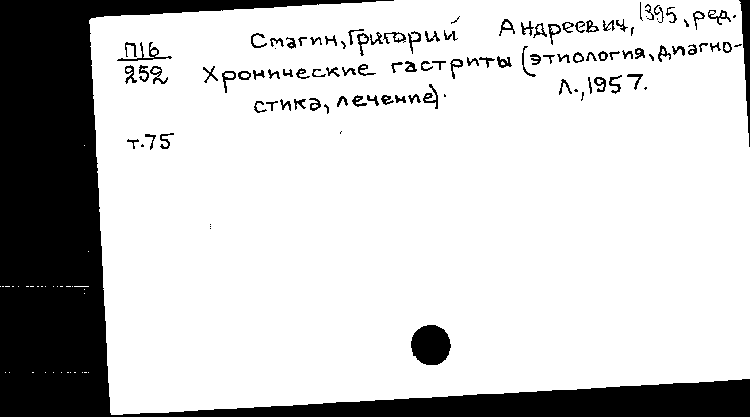 П16 Смагин, Григорий Андреевич, 1895, ред.
252 Хронические гастриты (этиология, диагно-
стика, лечение). Л., 1957.
т.75